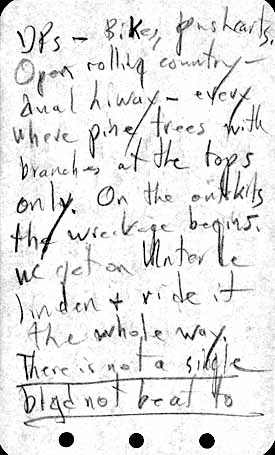 DPs – Bikes, pushcarts,
Open rolling country –
dual hiway – every
where pine trees with
branches at the tops
only. On the outskits
the wreckage begins.
we get on Unter de
linden + ride it
the whole way.
There is not a single
bldg not beat to